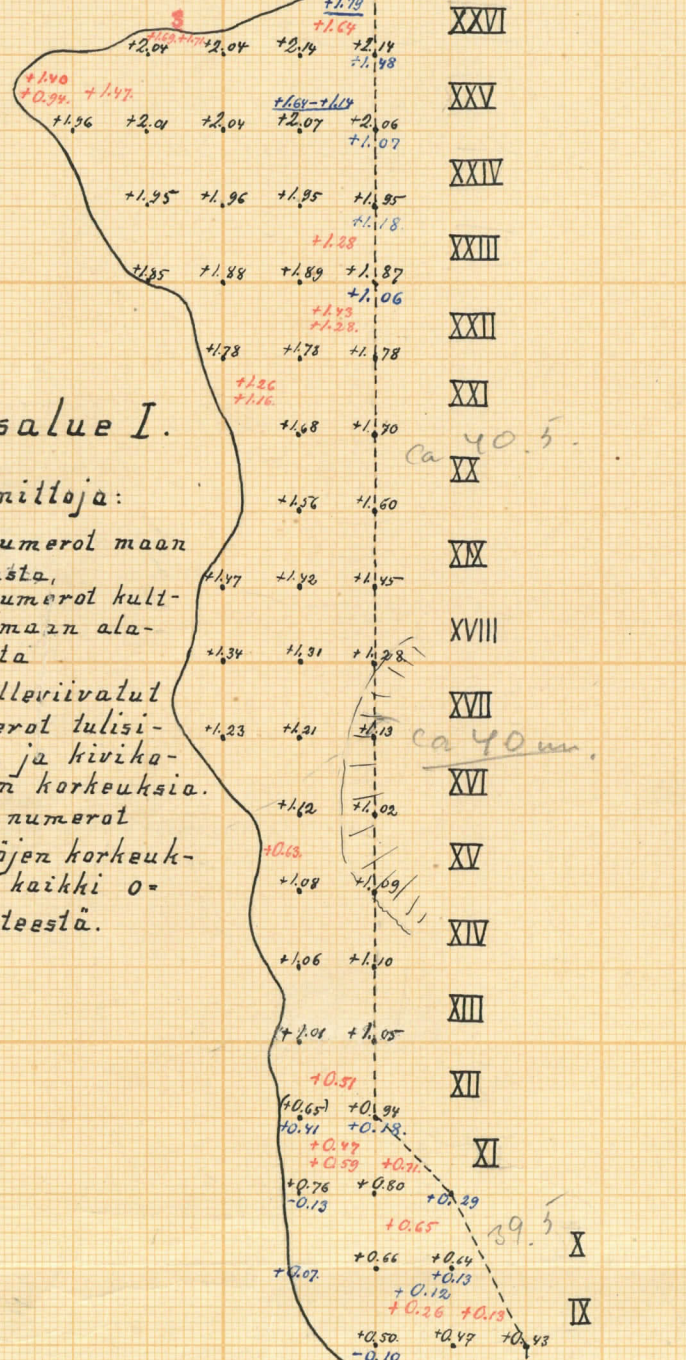 +1.79
XXVI
3
+1.64
+1.69 +1.71
+2.04 +2.04 +2.14 +2.14
÷1.48
+1.40
+0.94. +1.47.
XXV
+1.64-+1.14
+1.96 +2.01 +2.04 +2.07 +2.06
+1.07
XXIV
+1.95 +1.96 +1.95 +1.95
+1.18
+1.28
XXIII
+1.85 +1.88 +1.89 +1.87
+1.06
+1.43
+1.28.
XXII
+1.78 +1.78
+1.26
+1.16.
XXI
salue I.
+1.68 +1.70
ca 40.5.
XX
mittoja:
+1.56 +1.60
umerot maan
XIX
sta,
+1.47 +1.42 +1.45
umerot kult-
maan ala-
XVIII
ta
+1.34 +1.31 +1.28
lleviivatut
XVII
erot tulisi-
+1.23 +1.21 +1.13
ca 40 m.
ja kivika-
n korkeuksia.
XVI
numerot
+1.12 +1.02
öjen korkeuk-
+0.63.
XV
kaikki o=
+1.08 +1.09
teestä.
XIV
+1.06 +1.10
XIII
+1.01 +1.05
+0.51
XII
(+0.65) +0.94
+0.41 +0.18.
+0.47
+0.59 +0.71.
XI
+0.76 +0.80
-0.13 +0.29
+0.65
39.5
X
+0.66 +0.64
+0.07. +0.13
+0.12
+0.26 +0.13
IX
+0.50 +0.47 +0.43
-0.10